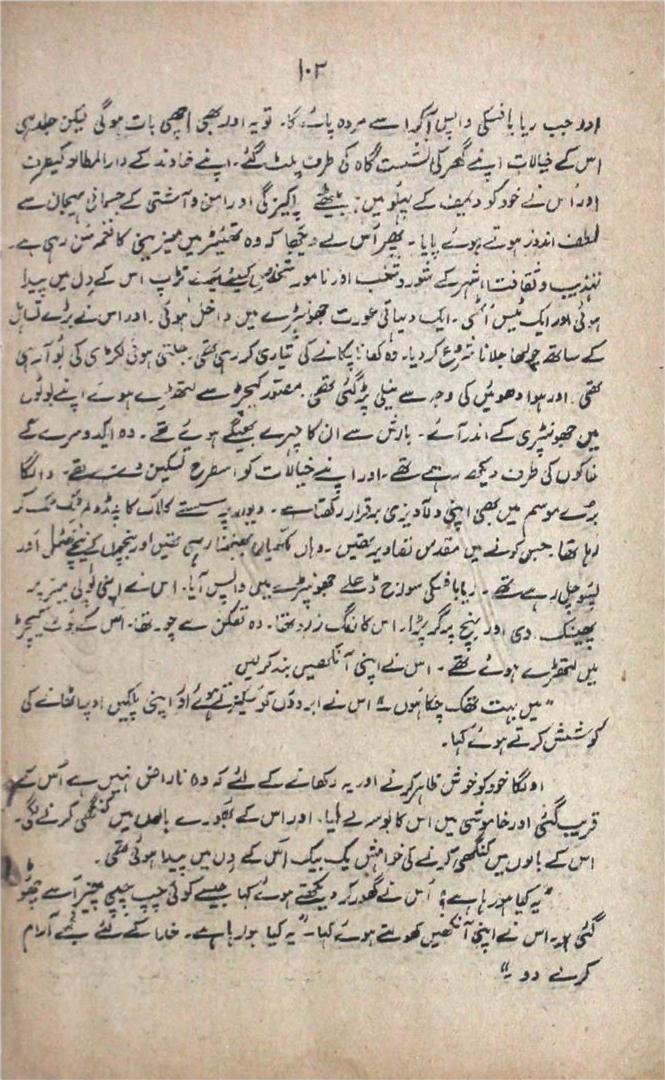 ۱۰۳
اور جب ریا بافسکی واپس آکر اسے مردہ پائے گا۔ تو یہ اور بھی اچھی بات ہوگی لیکن جلد ہی
اس کے خیالات اپنے گھر کی نشست گاہ کی طرف پلٹ گئے۔ اپنے خاوند کے دارالمطالعہ کیطرف
اور اس نے خود کو دیمف کے پہلو میں بیٹھے پاکیزگی اور امن و آشتی کے جسمانی ہیجان سے
لطف اندوز ہوتے ہوئے پایا۔ پھر اس نے دیکھا کہ وہ تھئیٹر میں میزینی کا نغمہ سُن رہی ہے۔
تہذیب و ثقافت، شہر کے شور و شغب اور نامور شخصوں کیلئے تڑپ اس کے دِل میں پیدا
ہوئی اور ایک ٹیس اُٹھی۔ ایک دیہاتی عورت جھونپڑے میں داخل ہوئی۔ اور اس نے بڑے تساہل
کے ساتھ چولھا جلانا شروع کر دیا۔ وہ کھانا پکانے کی تیاری کر رہی تھی۔ جلتی ہوئی لکڑی کی بُو آ رہی
تھی۔ اور ہوا دھوئیں کی وجہ سے نیلی پڑ گئی تھی۔ مصور کیچڑ سے لتھڑے ہوئے اپنے بوٹوں
میں جھونپڑی کے اندر آئے۔ بارش سے ان کا چہرے بھیگے ہوئے تھے۔ وہ ایک دوسرے کے
خاکوں کی طرف دیکھ رہے تھے۔ اور اپنے خیالات کو اسطرح تسکین دے رہے تھے۔ والگا
بُرے موسم میں بھی اپنی دلآویزی برقرار رکھتا ہے۔ دیوار پر سستے کلاک کا پنڈولم ٹک ٹک کر
رہا تھا۔ جس کونے میں مقدس تصاویر تھیں۔ وہاں مکھیاں بھنبھنا رہی تھیں اور بنچوں کے نیچے کھٹمل اور
پسو چل رہے تھے۔ ریا بافسکی سورج ڈھلے جھونپڑے میں واپس آیا۔ اس نے اپنی ٹوپی میز پر
پھینک دی اور بنچ پر گر پڑا۔ اس کا رنگ زرد تھا۔ وہ تھکن سے چور تھا۔ اس کے بُوٹ کیچڑ
میں لتھڑے ہوئے تھے۔ اس نے اپنی آنکھیں بند کر لیں
"میں بہت تھک چکا ہوں۔" اس نے ابروؤں کو سکیڑتے ہوئے اور اپنی پلکیں اوپر اٹھانے کی
کوشش کرتے ہوئے کہا۔
اولگا خود کو خوش ظاہر کرنے اور یہ دکھانے کے لئے کہ وہ ناراض نہیں ہے اُس کے
قریب گئی اور خاموشی میں اس کا بوسہ لے لیا۔ اور اس کے بھورے بالوں میں کنگھی کرنے لگی۔
اس کے بالوں میں کنگھی کرنے کی خواہش یک بیک اُس کے دل میں پیدا ہوئی تھی۔
"یہ کیا ہو رہا ہے؟ اُس نے گھور کر دیکھتے ہوئے کہا جیسے کوئی چپ چپی چیز اُسے چھُو
گئی ہو۔ اس نے اپنی آنکھیں کھولتے ہوئے کہا۔ "یہ کیا ہو رہا ہے۔ خدا کے لئے مجھے آرام
کرنے دو۔"